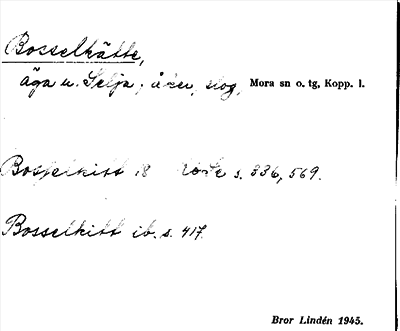 Bosselhätte,
äga u. Selja; åker, slog, Mora sn o. tg, Kopp. l.
Bosselhitt 18 s. 336, 569.
Bosselhitt ib. s. 417.
Bror Lindén 1945.